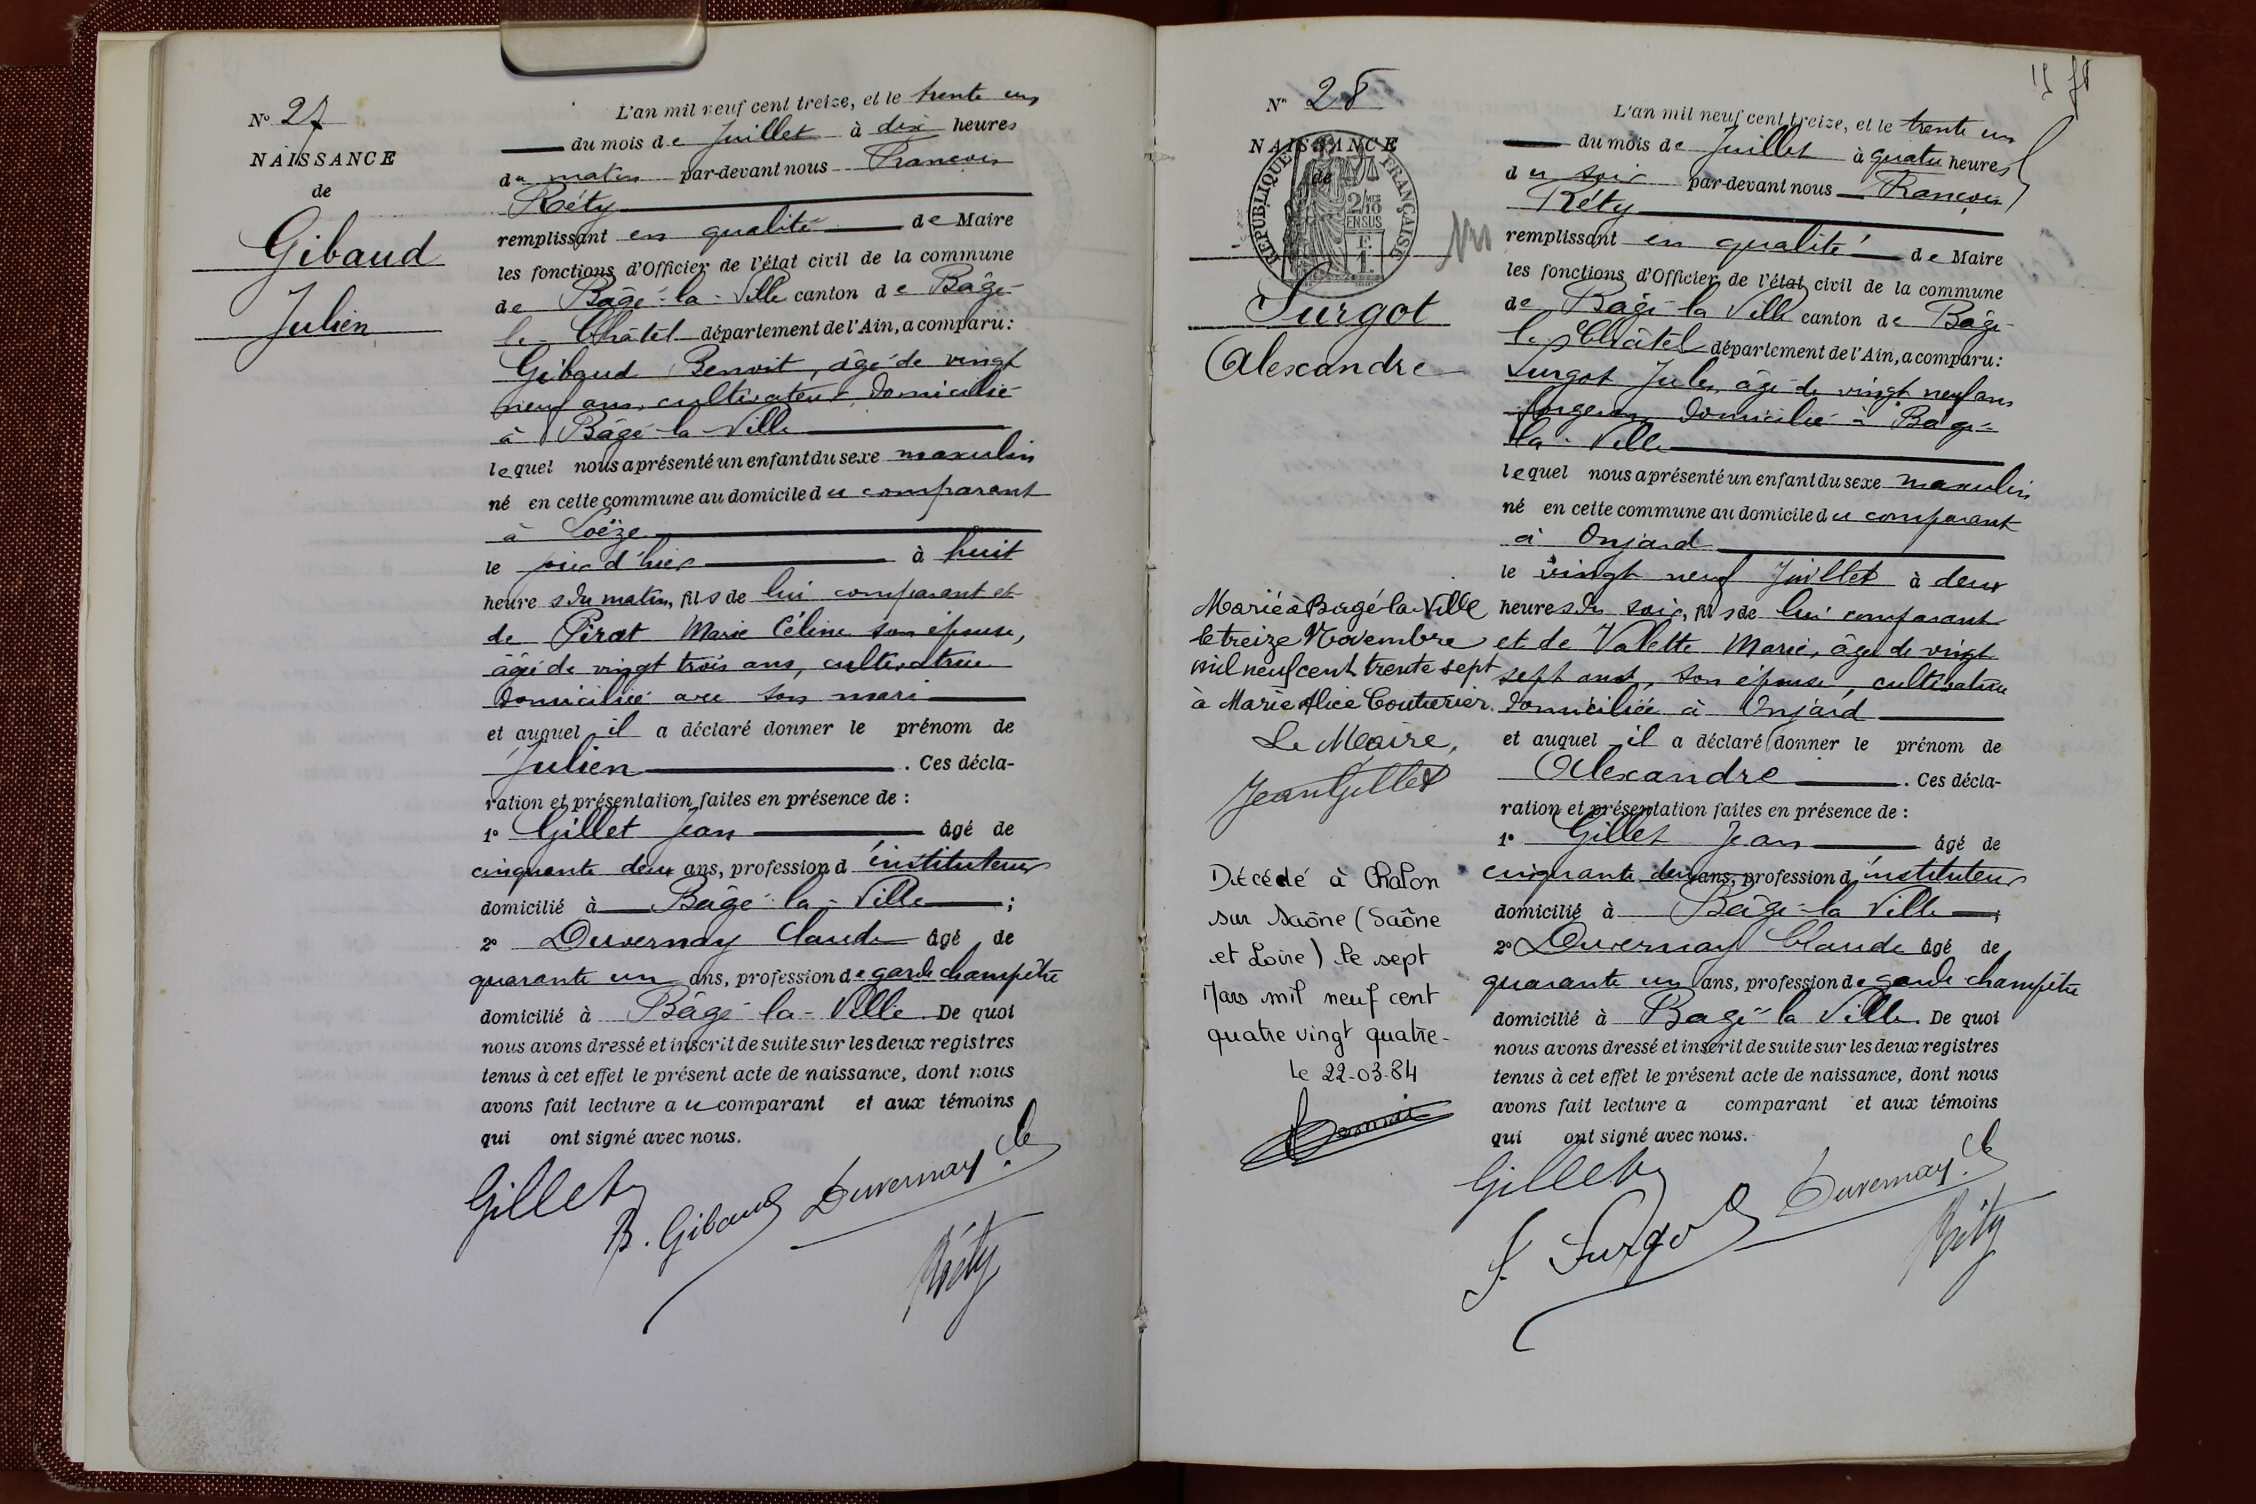 N° 27
NAISSANCE
de
Gibaud
Julien
L'an mil neuf cent treize, et le trente un
du mois de Juillet à dix heures
du matin par-devant nous François
Réty
remplissant en qualité de Maire
les fonctions d'Officier de l'état civil de la commune
de Bâgé-la-Ville canton de Bâgé-
le-Châtel département de l'Ain, a comparu:
Gibaud Benoit, âgé de vingt
neuf ans, cultivateur, domicilié
à Bâgé-la-Ville
lequel nous a présenté un enfant du sexe masculin
né en cette commune au domicile du comparant
à Loëze
le jour d'hier à huit
heures du matin, fils de lui comparant et
de Pirat Marie Céline son épouse,
âgée de vingt trois ans, cultivatrice
domiciliée avec son mari
et auquel il a déclaré donner le prénom de
Julien . Ces décla-
ration et présentation faites en présence de :
1° Gillet Jean âgé de
cinquante deux ans, profession d'instituteur
domicilié à Bâgé-la-Ville ;
2° Duvernay Claude âgé de
quarante un ans, profession de garde champêtre
domicilié à Bâgé-la-Ville. De quoi
nous avons dressé et inscrit de suite sur les deux registres
tenus à cet effet le présent acte de naissance, dont nous
avons fait lecture au comparant et aux témoins
qui ont signé avec nous.
Gillet B. Gibaud Duvernay Cle
Réty
N° 28
NAISSANCE
de
REPUBLIQUE FRANÇAISE
2/10
EN SUS
Surgot
Alexandre
Marié à Bagé-la-Ville
le treize Novembre
mil neuf cent trente sept
à Marie Alice Couturier.
Le Maire,
Jean Gillet
Décédé à Chalon
sur Saône (Saône
et Loire) le sept
Mars mil neuf cent
quatre vingt quatre-
le 22-03-84
L'an mil neuf cent treize, et le trente un
du mois de Juillet à quatre heures
du soir par-devant nous François
Réty
remplissant en qualité de Maire
les fonctions d'Officier de l'état civil de la commune
de Bâgé-la Ville canton de Bâgé-
le Châtel département de l'Ain, a comparu:
Surgot Jules, âgé de vingt neuf ans
forgeron, domicilié à Bâgé-
la-Ville
lequel nous a présenté un enfant du sexe masculin
né en cette commune au domicile du comparant
à Onjard
le vingt neuf Juillet à deux
heures du soir, fils de lui comparant
et de Valette Marie, âgée de vingt
sept ans, son épouse, cultivatrice
domiciliée à Onjard
et auquel il a déclaré donner le prénom de
Alexandre . Ces décla-
ration et présentation faites en présence de :
1° Gillet Jean âgé de
cinquante deux ans, profession d'instituteur
domicilié à Bâgé-la Ville ;
2° Duvernay Claude âgé de
quarante un ans, profession de garde champêtre
domicilié à Bagé-la Ville. De quoi
nous avons dressé et inscrit de suite sur les deux registres
tenus à cet effet le présent acte de naissance, dont nous
avons fait lecture a comparant et aux témoins
qui ont signé avec nous.
Gillet Duvernay Cle
J. Surgot Réty